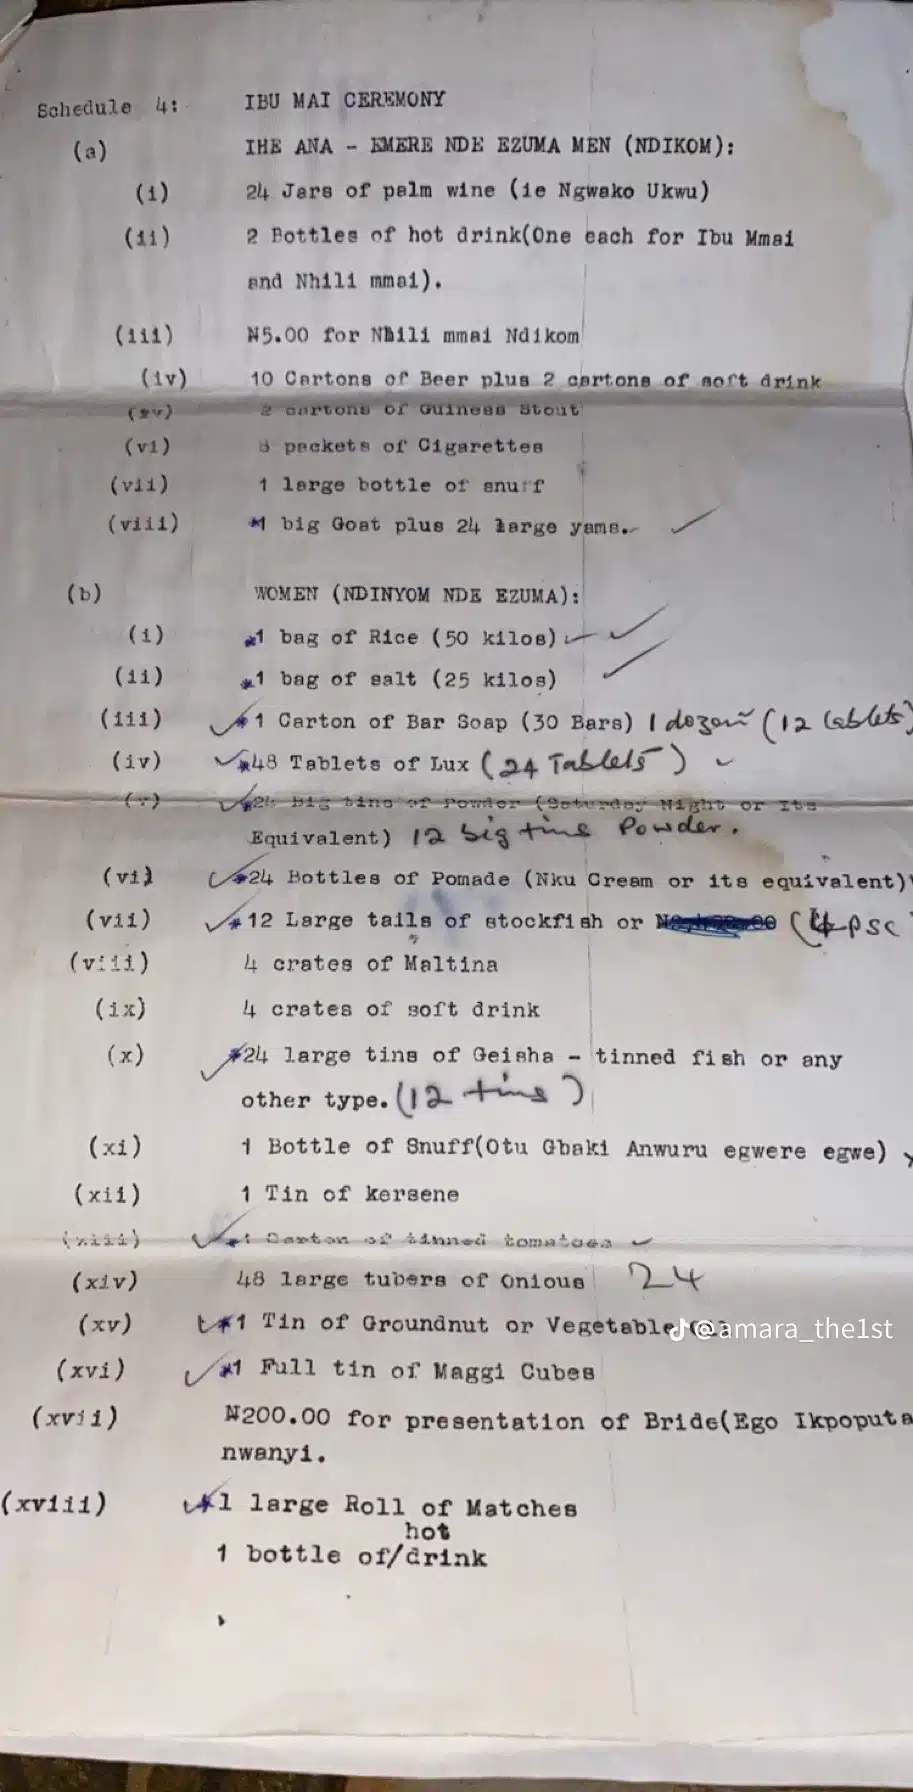 Schedule 4: IBU MAI CEREMONY
(a) IHE ANA - EMERE NDE EZUMA MEN (NDIKOM):
(i) 24 Jars of palm wine (ie Ngwako Ukwu)
(ii) 2 Bottles of hot drink(One each for Ibu Mmai
and Nhili mmai).
(iii) ₦5.00 for Nhili mmai Ndikom
(iv) 10 Cartons of Beer plus 2 cartons of soft drink
2 cartons of Guiness Stout
(vi) packets of Cigarettes
(vii) 1 large bottle of snuff
(viii) *1 big Goat plus 24 large yams.
(b) WOMEN (NDINYOM NDE EZUMA):
(i) *1 bag of Rice (50 kilos)
(ii) *1 bag of salt (25 kilos)
(iii) *1 Carton of Bar Soap (30 Bars) 1 dozen (12 tablets)
(iv) *48 Tablets of Lux (24 Tablets)
(v) big tins of Powder (Saturday Night or Its
Equivalent) 12 big tins Powder.
(vi) *24 Bottles of Pomade (Nku Cream or its equivalent)
(vii) *12 Large tails of stockfish or (4 psc
(viii) 4 crates of Maltina
(ix) 4 crates of soft drink
(x) *24 large tins of Geisha - tinned fish or any
other type. (12 tins)
(xi) 1 Bottle of Snuff(Otu Gbaki Anwuru egwere egwe)
(xii) 1 Tin of kersene
(xiii) *1 Carton of tinned tomatoes
(xiv) 48 large tubers of Onious 24
(xv) *1 Tin of Groundnut or Vegetable
@amara_the1st
(xvi) *1 Full tin of Maggi Cubes
(xvii) ₦200.00 for presentation of Bride(Ego Ikpoputa
nwanyi.
(xviii) *1 large Roll of Matches
hot
1 bottle of/drink